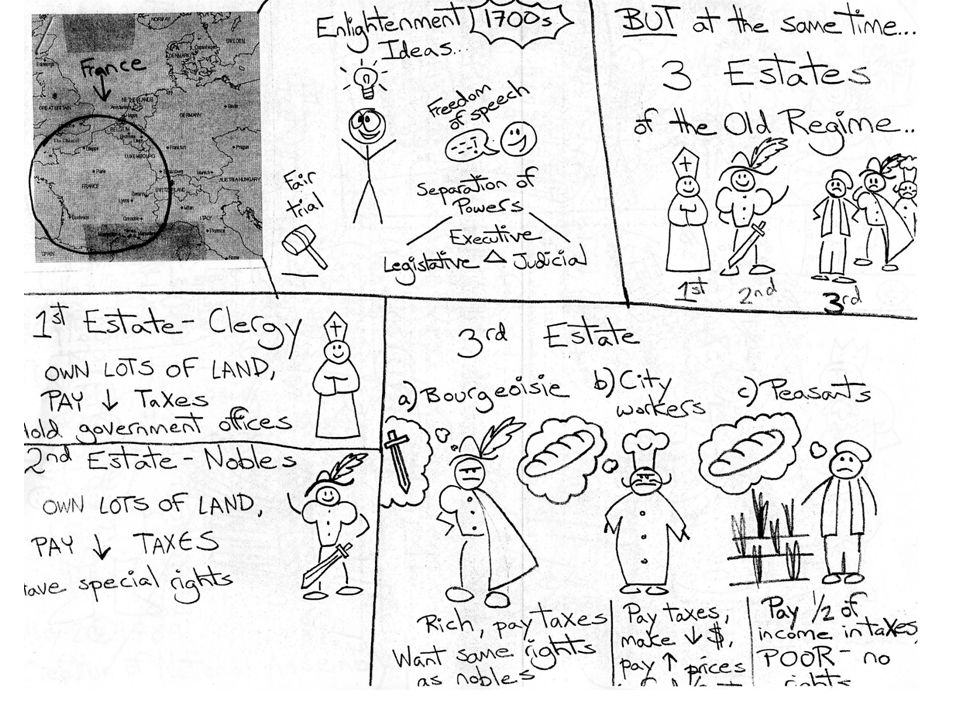 France
GERMANY
FRANCE
Enlightenment
1700s
Ideas...
Freedom
of speech
Fair
trial
Separation of
Powers
Executive
Legislative
Judicial
BUT at the same time...
3 Estates
of the Old Regime..
1st
2nd
3rd
1st Estate- Clergy
OWN LOTS OF LAND,
PAY ↓ TAXES
Hold government offices
2nd Estate- Nobles
OWN LOTS OF LAND,
PAY ↓ TAXES
have special rights
3rd Estate
a) Bourgeoisie
Rich, pay taxes
Want same rights
as nobles
b) City
workers
Pay taxes,
make ↓ $,
pay ↑ prices
c) Peasants
Pay 1/2 of
income in taxes,
POOR- no
rights